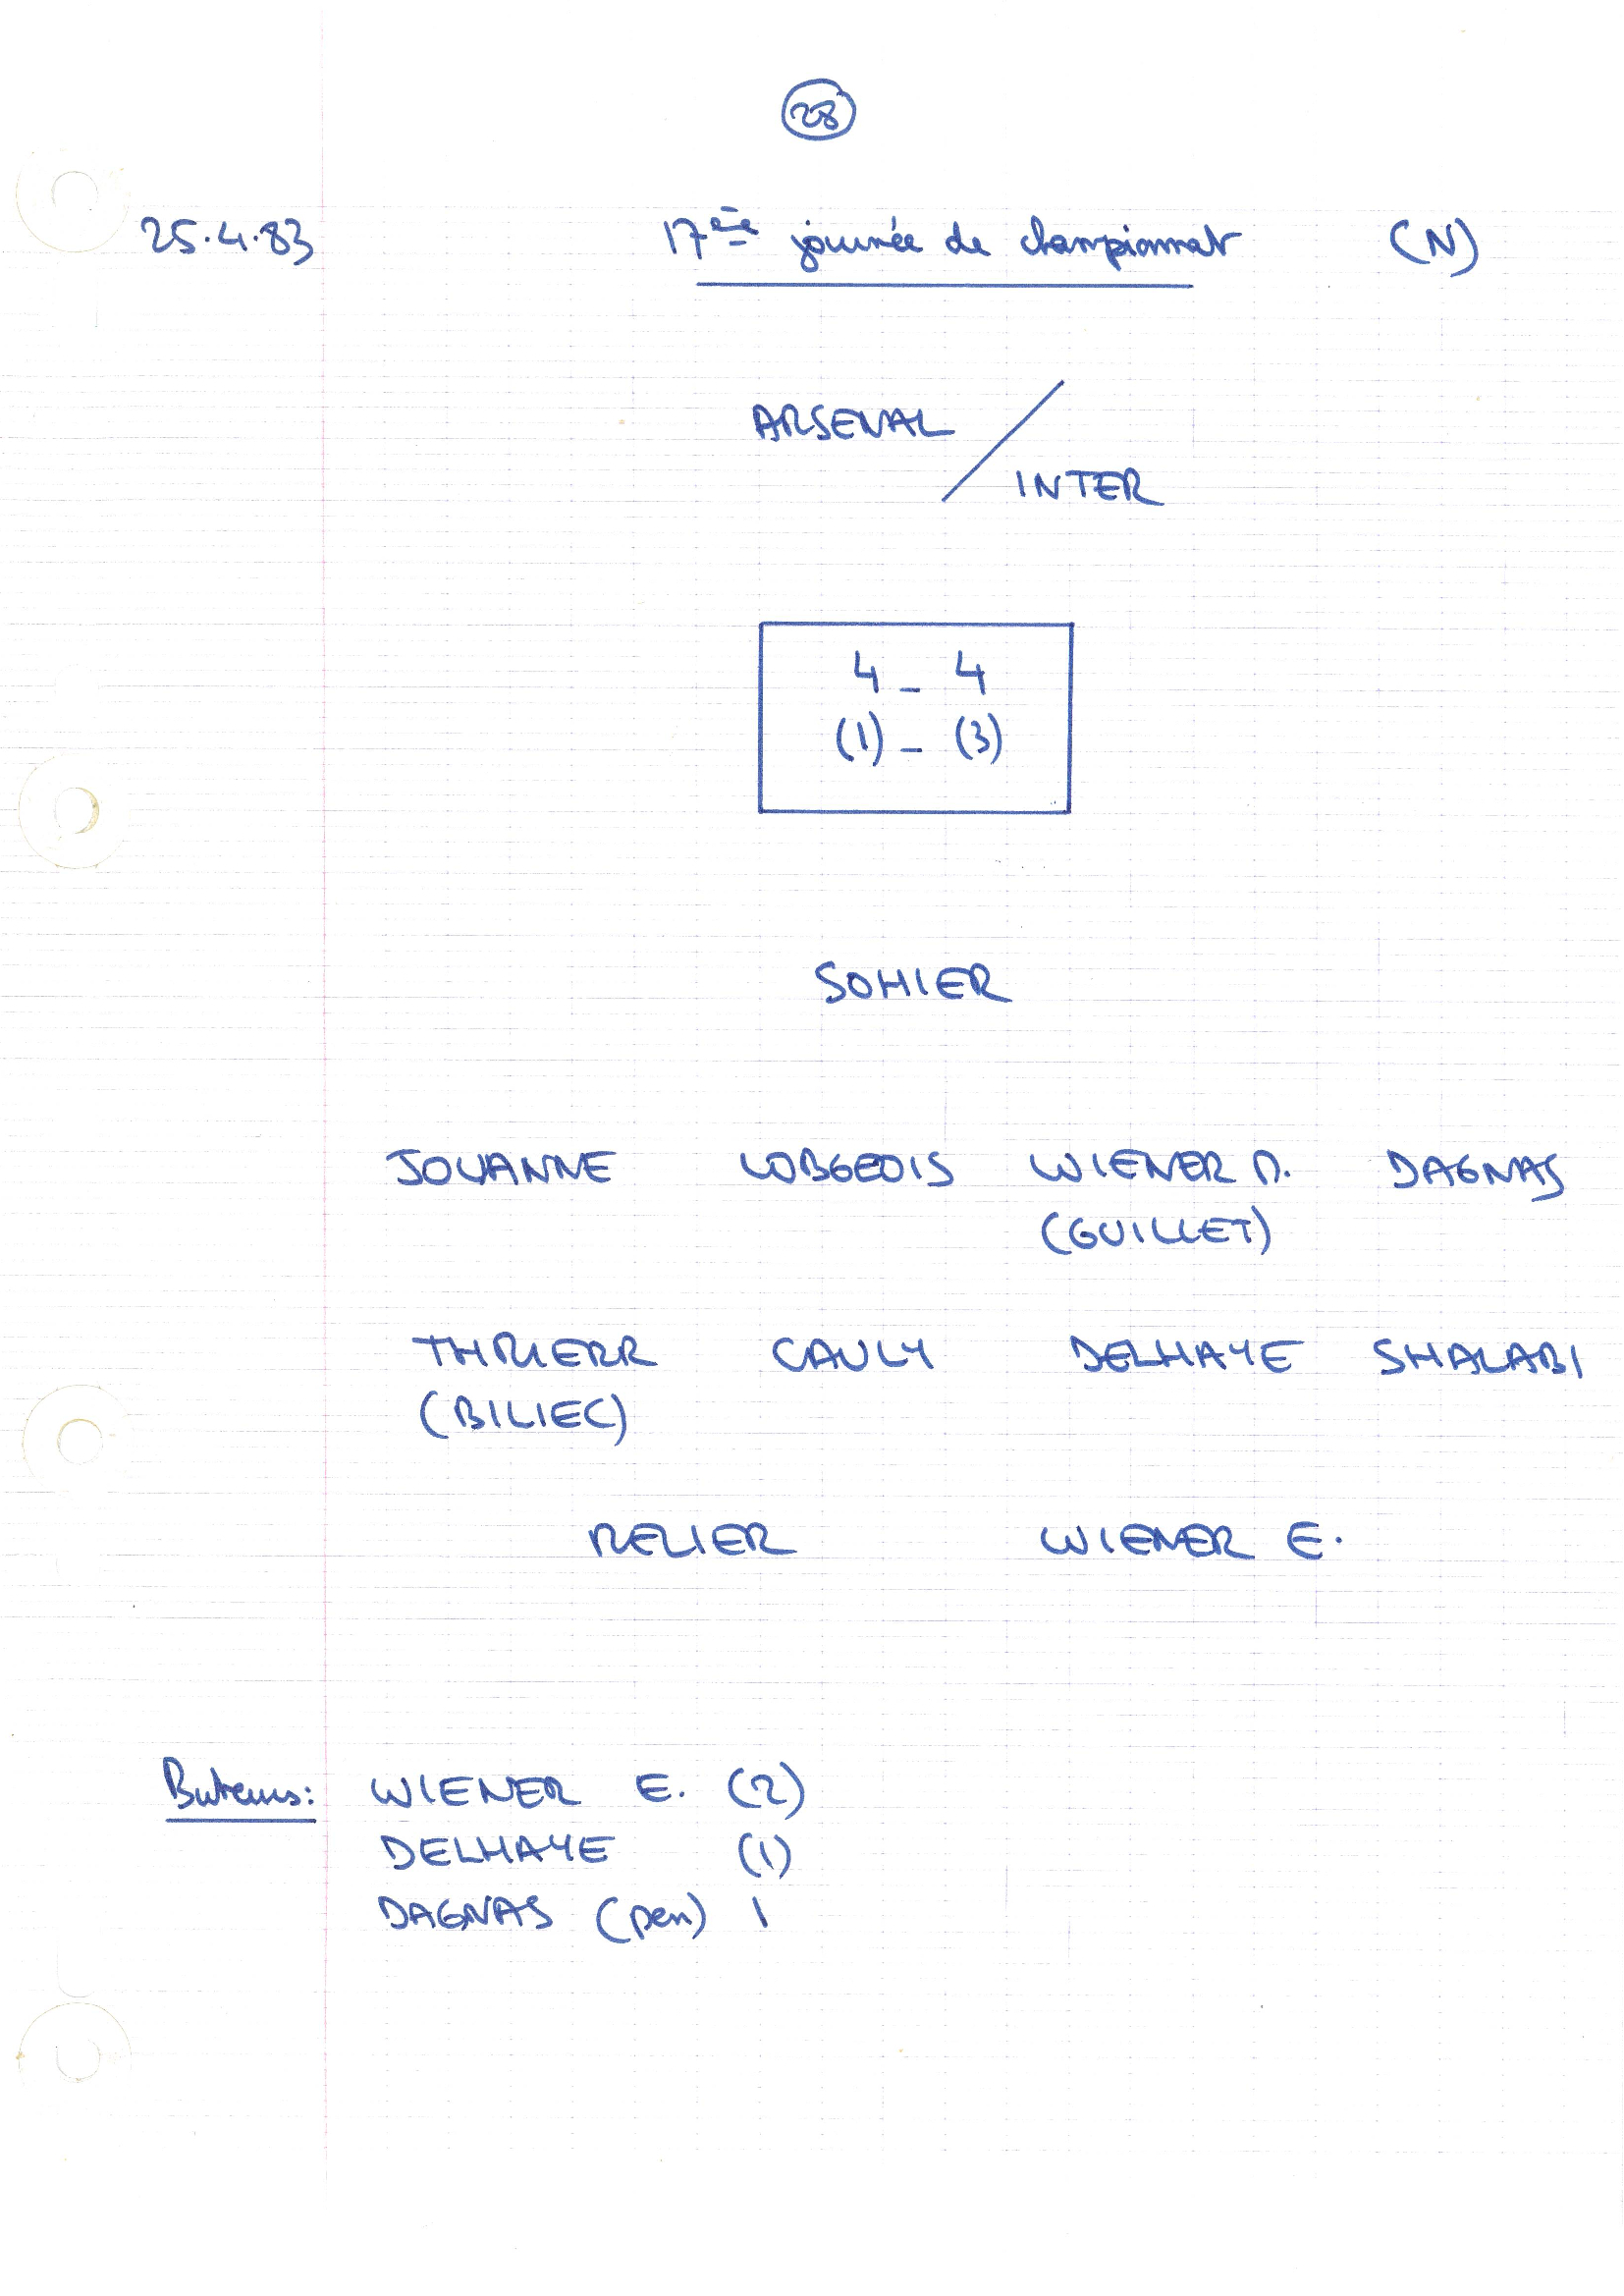 28
25.4.83 17ème journée de championnat (N)
ARSENAL /
INTER
4 - 4
(1) - (3)
SOHIER
JOUANNE LOBGEOIS WIENER D. DAGNAS
(GUILLET)
THRIERR CAULY DELHAYE SHALABI
(BILIEC)
WIENER E.
Buteurs: WIENER E. (2)
DELHAYE (1)
DAGNAS (pen) 1